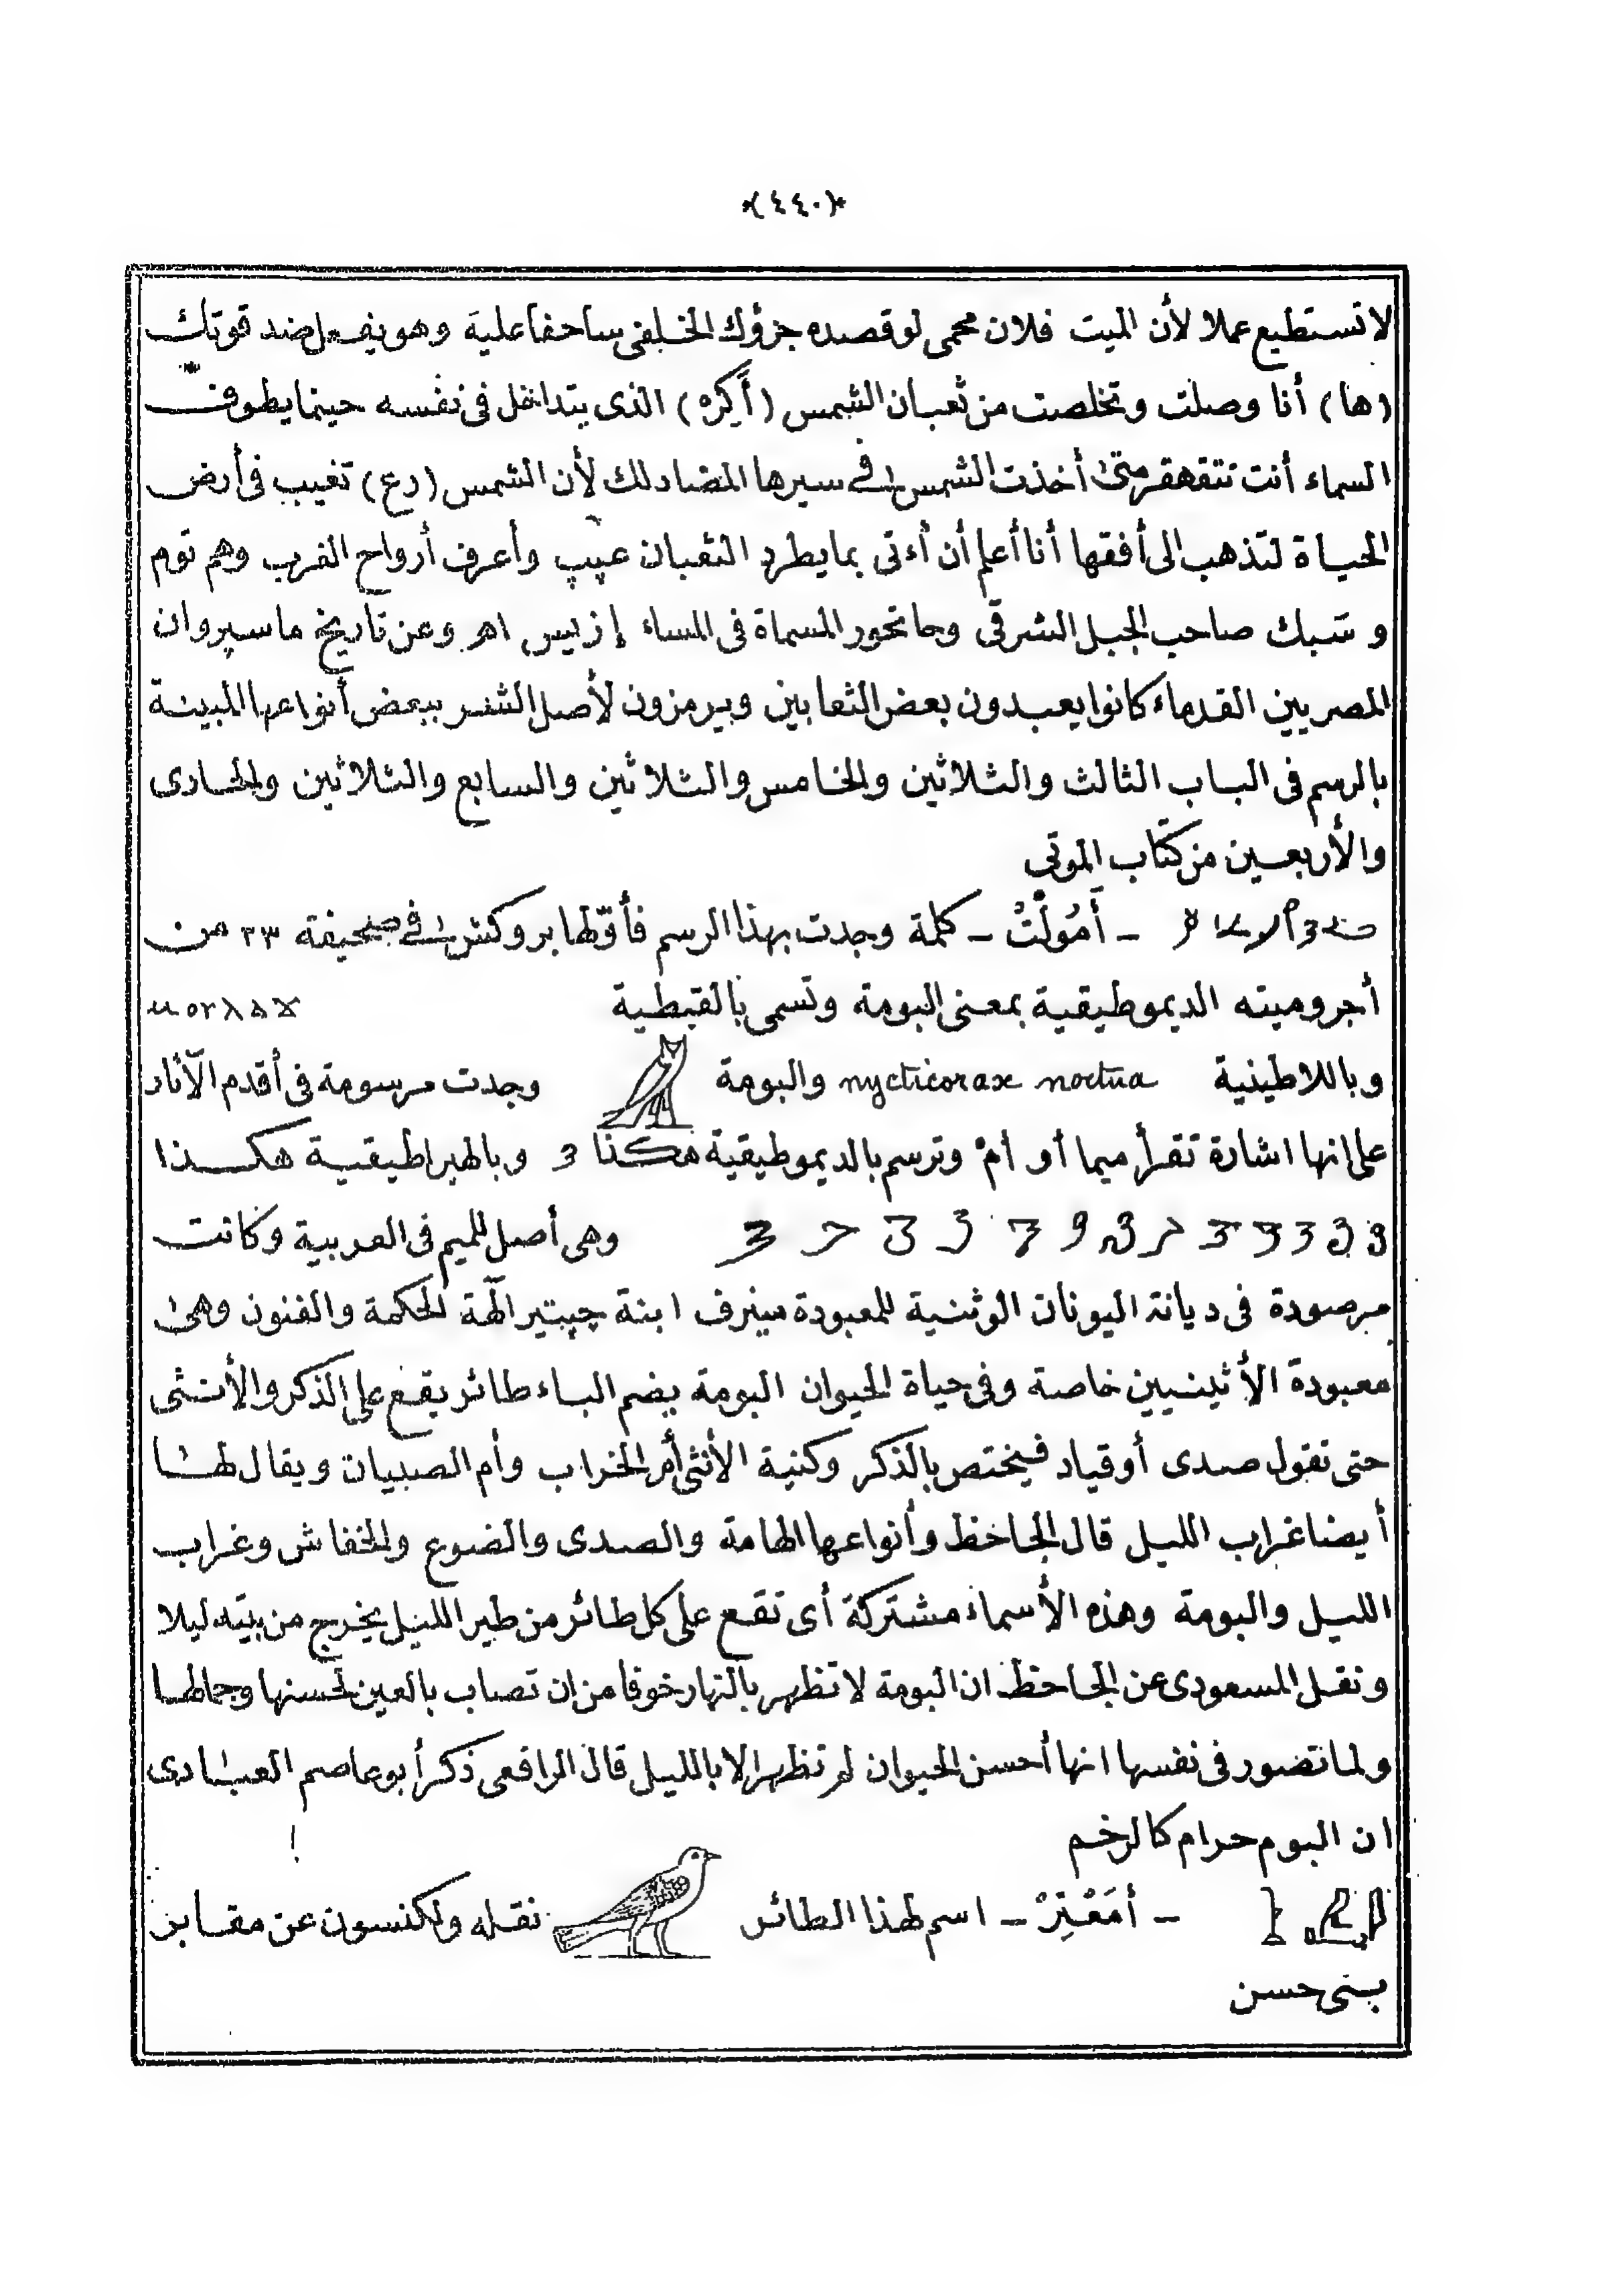 *(٤٤٠)*
لا تستطيع عملا لأن الميت فلان محمى لو قصده جزؤك الخلفى ساحفا عليه وهو يفعل ضد قوتك
(ها) أنا وصلت وتخلصت من ثعبان الشمس (أَكِره) الذى يتداخل فى نفسه حينما يطوف
السماء أنت تتقهقر متى أخذت الشمس فى سيرها المضاد لك لأن الشمس (رع) تغيب فى أرض
الحياة لتذهب الى أفقها أنا أعلم أن أءتى بما يطرد الثعبان عبب وأعرف أرواح الغرب وهم توم
و سبك صاحب الجبل الشرقى وحاتحور المسماة فى المساء إزيس اهـ وعن تاريخ ماسپرو ان
المصريين القدماء كانوا يعبدون بعض الثعابين ويرمزون لأصل الشر ببعض أنواعها المبينة
بالرسم فى الباب الثالث والثلاثين والخامس والثلاثين والسابع والثلاثين والحادى
والأربعين من كتاب الموتى
– أَمُولَتْ – كلمة وجدت بهذا الرسم فأوّلها بروكش فى صحيفة ٢٣ من
أجروميته الديموطيقية بمعنى البومة وتسمى بالقبطية
وباللاطينية nycticorax noctua والبومة وجدت مرسومة فى أقدم الآثار
على انها اشارة تقرأ ميما أو أمْ وترسم بالديموطيقية هكذا 3 وبالهيراطيقية هكذا
وهى أصل للميم فى العربية وكانت
مرصودة فى ديانة اليونان الوثنية للمعبودة مينرف ابنة چپتير الٓهة الحكمة والفنون وهى
معبودة الأثينيين خاصة وفى حياة الحيوان البومة بضم الباء طائر يقع على الذكر والأنثى
حتى تقول صدى أو قياد فيختص بالذكر وكنية الأنثى أم الخراب وأم الصبيان ويقال لها
أيضا غراب الليل قال الجاحظ وأنواعها الهامة والصدى والضوع والخفاش وغراب
الليل والبومة وهذه الأسماء مشتركة أى تقع على كل طائر من طير الليل يخرج من بيته ليلا
ونقل المسعودى عن الجاحظ ان البومة لا تظهر بالنهار خوفا من ان تصاب بالعين لحسنها وجمالها
ولما تصور فى نفسها انها أحسن الحيوان لم تظهر الا بالليل قال الرافعى ذكر أبو عاصم العبادى
ان البوم حرام كالرخم
– أمَعْبَرْ – اسم لهذا الطائر نقله ولكنسون عن مقابر
بنى حسن